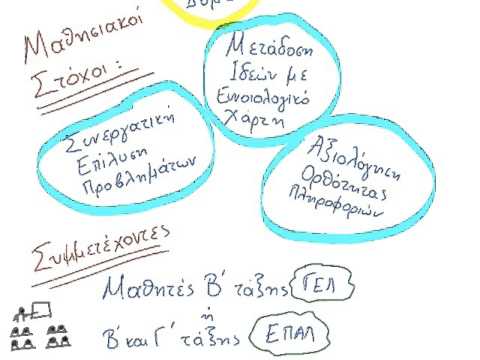 Μαθησιακοί
Στόχοι:
Μετάδοση
Ιδεών με
Εννοιολογικό
Χάρτη
Συνεργατική
Επίλυση
Προβλημάτων
Αξιολόγηση
Ορθότητας
Πληροφοριών
Συμμετέχοντες
Μαθητές Β΄ τάξης ΓΕΛ
ή
Β΄ και Γ΄ τάξης ΕΠΑΛ